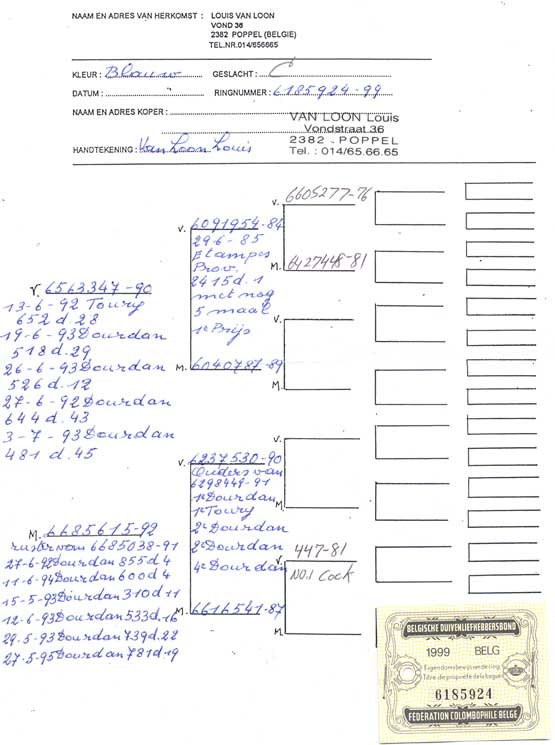 NAAM EN ADRES VAN HERKOMST : LOUIS VAN LOON
VOND 36
2382 POPPEL (BELGIE)
TEL.NR.014/656665
KLEUR : Blauw GESLACHT :
DATUM : RINGNUMMER : 6185924-99
NAAM EN ADRES KOPER :
VAN LOON Louis
Vondstraat 36
2382 - POPPEL
Tel. : 014/65.66.65
HANDTEKENING : Van Loon Louis
V. 6563347-90
13-6-92 Toury
652 d. 28
19-6-93 Dourdan
518 d. 29
26-6-93 Dourdan
526 d. 12
27-6-92 Dourdan
644 d. 43
3-7-93 Dourdan
481 d. 45
M. 6685615-92
6685038-91
27-6-92 Dourdan 855 d 4
11-6-94 Dourdan 600 d 4
15-5-93 Dourdan 310 d 11
12-6-93 Dourdan 533 d. 16
29-5-93 Dourdan 739 d. 22
27-5-95 Dourdan 781 d. 19
V. 6091954-84
29-6-85
Etampes
Prov.
2415 d. 1
met nog
5 maal
1e Prijs
M. 6040787-89
V. 6237530-90
Ouders van
6298449-91
1e Dourdan
1e Toury
2e Dourdan
2e Dourdan
4e Dourdan
M. 6616541-87
V. 6605277-76
M. 6427448-81
V.
M.
V.
M.
V. 447-81
NO.1 Cock
M.
BELGISCHE DUIVENLIEFHEBBERSBOND
1999 BELG
Eigendomsbewijs van de ring
Titre de propriété de la bague
6185924
FÉDÉRATION COLOMBOPHILE BELGE